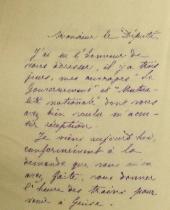 Monsieur le Député
J'ai eu l'honneur de
vous adresser, il y a trois
jours, mes ouvrages "Le
Gouvernement" et "Mutua-
lité nationale" dont vous
avez bien voulu m'accu-
ser réception.
Je viens aujourd'hui
conformément à la
demande que vous m'en
avez faite, vous donner
l'heure des trains pour
venir à Guise.